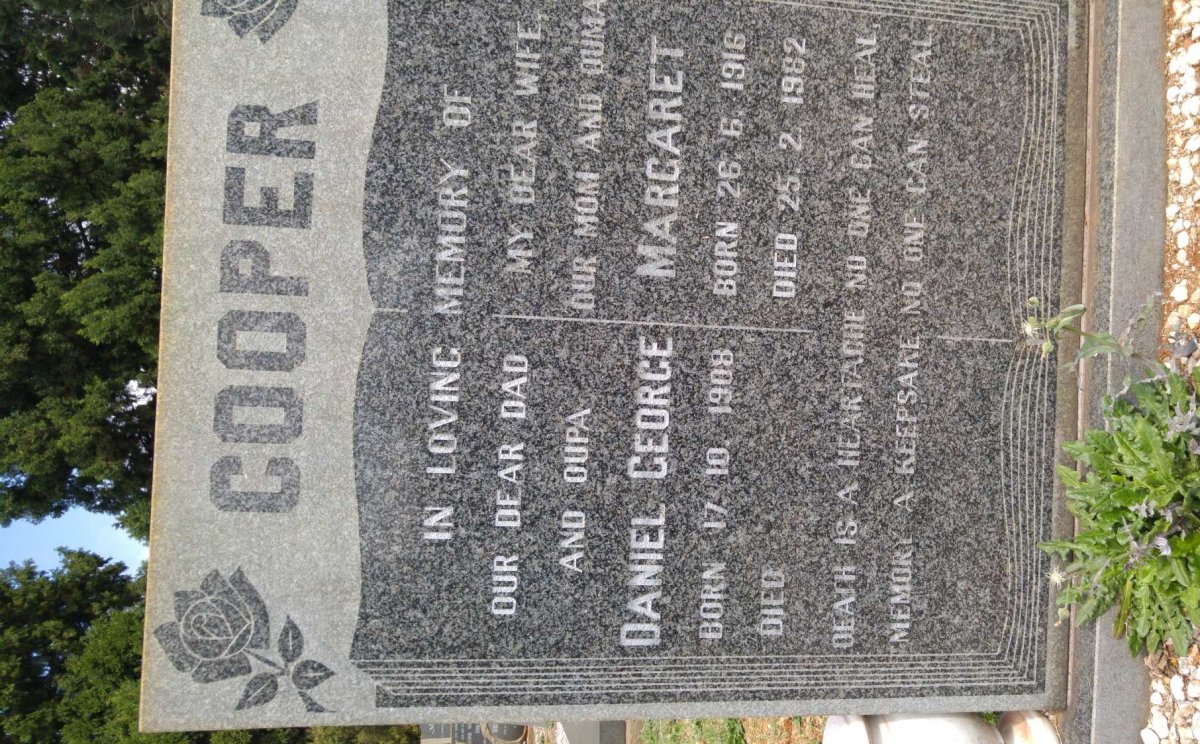 COOPER
IN LOVING MEMORY OF
OUR DEAR DAD
AND OUPA
DANIEL GEORGE
BORN 17. 10. 1908
DIED
MY DEAR WIFE,
OUR MOM AND OUMA
MARGARET
BORN 26. 6. 1916
DIED 25. 2. 1982
DEATH IS A HEARTACHE NO ONE CAN HEAL,
MEMORY A KEEPSAKE NO ONE CAN STEAL.